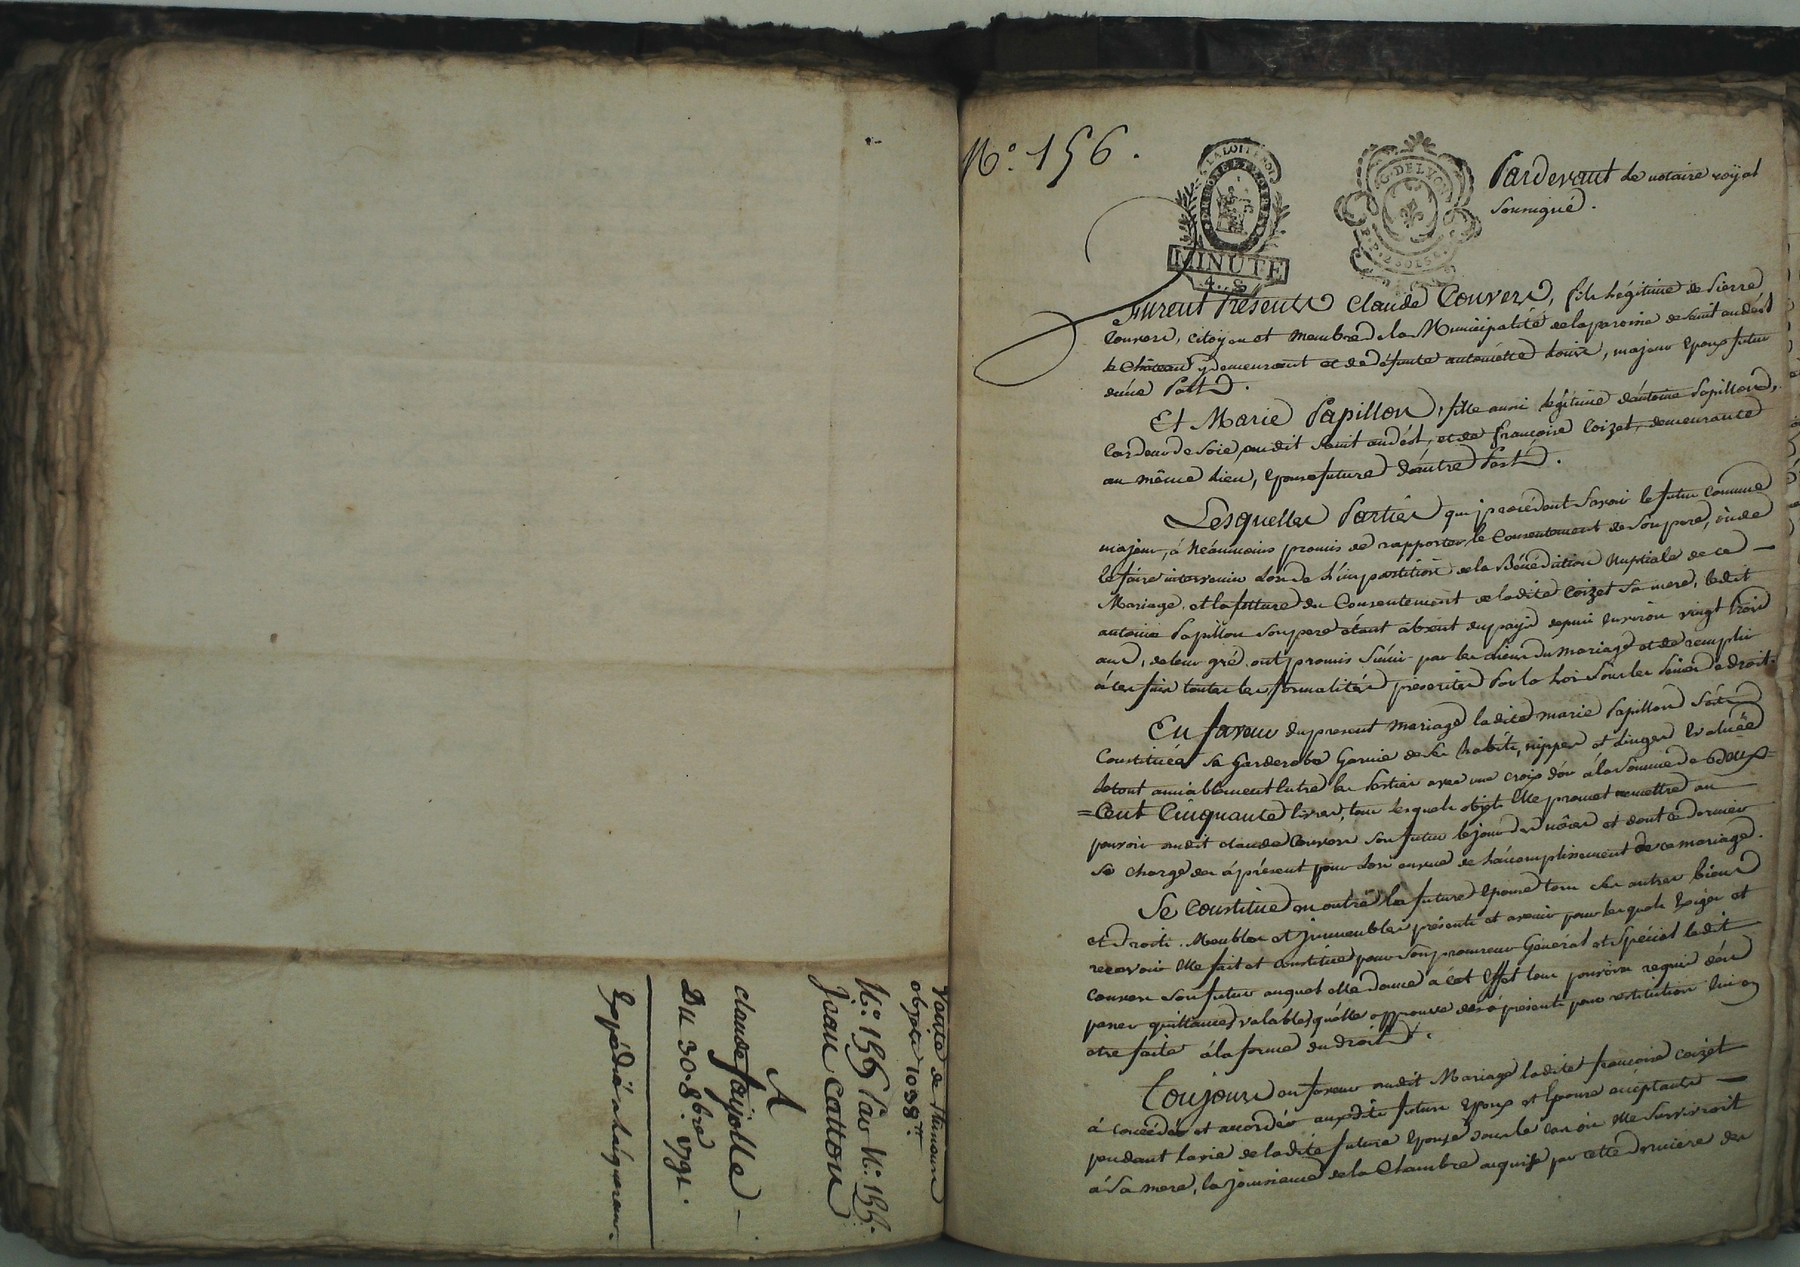 Vente de
objets 1038.tt
N.o 155 Par N.o 155.
Jean Catton
A
claude fayolle —
Du 30. 8.bre 1791.
Expédié à l'acquereur.
N.o 156.
LA LOI LE ROI
MINUTE
4. S
G. DE LYON
Pardevant le notaire royal
soussigné.
Furent Présents Claude Couvers, fils légitime de Pierre
Couvers, citoyen et membre de la Municipalité de la paroisse de Saint andéol
le Château y demeurant et de défunte antoinette, majeur Epoux futur
d'une Part.
Et Marie Papillon, fille aussi légitime d'antoine Papillon,
Cardeur de Soie, audit Saint andéol, et de françoise Coizet, demeurante
au même Lieu, Epouse future d'autre Part.
Lesquelles Parties qui procédent Savoir le futur comme
majeur, à Néanmoins promis de rapporter le Consentement de Son pere, ou de
le faire intervenir lors de L'impartition de la Bénédiction Nuptiale de ce —
Mariage, et la future du Consentement de ladite Coizet Sa mere, ledit
antoine Papillon Son pere étant absent du pays depuis Environ vingt trois
ans, de leur gré, ont promis S'unir par les liens du mariage et de remplir
à ces fins toutes les formalités prescrites Par la Loi Sous les peines de droit.
En faveur du present mariage ladite marie Papillon S'est
Constituée Sa Garderobe Garnie de Ses habits, nippes et Linges Evaluée
le tout amiablement Entre les Parties avec une croix d'or à la Somme de deux=
=Cent Cinquante livres, tous lesquels objets Elle promet remettre au
pouvoir audit claude Couvers Son futur le jour des nôces et dont ce dernier
Se charge dès à présent pour lors ensuite de L'accomplissement de ce mariage.
Se Constitue en outre la future Epouse tous Ses autres biens
et Droits. Meubles et Immeubles présents et avenir pour lesquels Exiger et
recevoir Elle fait et Constitue pour Son procureur Général et Spécial ledit
Couvers Son futur auquel elle donne à cet Effet tous pouvoirs requis d'en
passer quittances valables qu'elle approuve dès à présent pour restitution lui en
etre faite à la forme du droit.
Toujours en faveur audit Mariage ladite françoise Coizet
à concédés et accordés auxdits futurs Epoux et Epouse acceptants —
pendant la vie de ladite future Epouse dans le cas où Elle Survivroit
à Sa mere, la jouissance de la Chambre acquise par cette derniere des